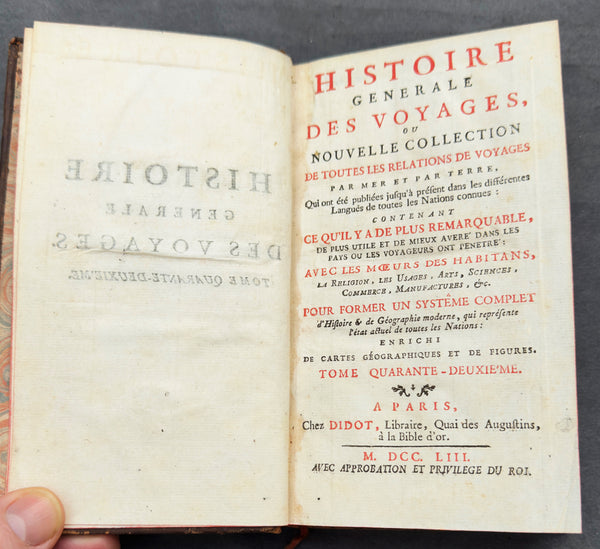 HISTOIRE
GENERALE
DES VOYAGES.
TOME QUARANTE-DEUXIEME.
HISTOIRE
GENERALE
DES VOYAGES,
OU
NOUVELLE COLLECTION
DE TOUTES LES RELATIONS DE VOYAGES
PAR MER ET PAR TERRE,
Qui ont été publiées jusqu'à présent dans les différentes
Langues de toutes les Nations connues :
CONTENANT
CE QU'IL Y A DE PLUS REMARQUABLE,
DE PLUS UTILE ET DE MIEUX AVERE' DANS LES
PAYS OU LES VOYAGEURS ONT PENETRE' :
AVEC LES MŒURS DES HABITANS,
LA RELIGION, LES USAGES, ARTS, SCIENCES,
COMMERCE, MANUFACTURES, &c.
POUR FORMER UN SYSTÊME COMPLET
d'Histoire & de Géographie moderne, qui représente
l'état actuel de toutes les Nations :
ENRICHI
DE CARTES GÉOGRAPHIQUES ET DE FIGURES.
TOME QUARANTE-DEUXIE'ME.
A PARIS,
Chez DIDOT, Libraire, Quai des Augustins,
à la Bible d'or.
M. DCC. LIII.
AVEC APPROBATION ET PRIVILEGE DU ROI.